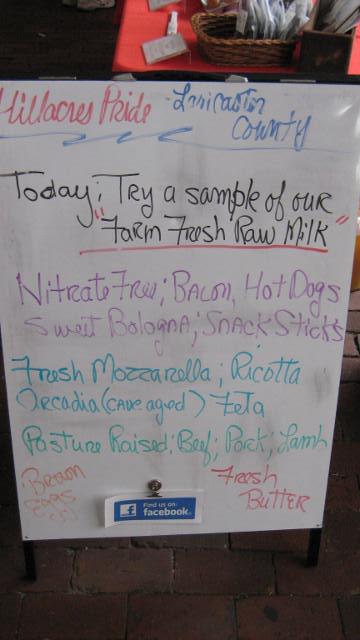 Hillacres Pride - Lancaster
County
Today: Try a sample of our
"Farm Fresh Raw Milk"
Nitrate Free; Bacon, Hot Dogs
Sweet Bologna; Snack Sticks
Fresh Mozzarella; Ricotta
Arcadia (cave aged) Feta
Pasture Raised: Beef; Pork; Lamb
Brown
Eggs
Fresh
Butter
Find us on
facebook.